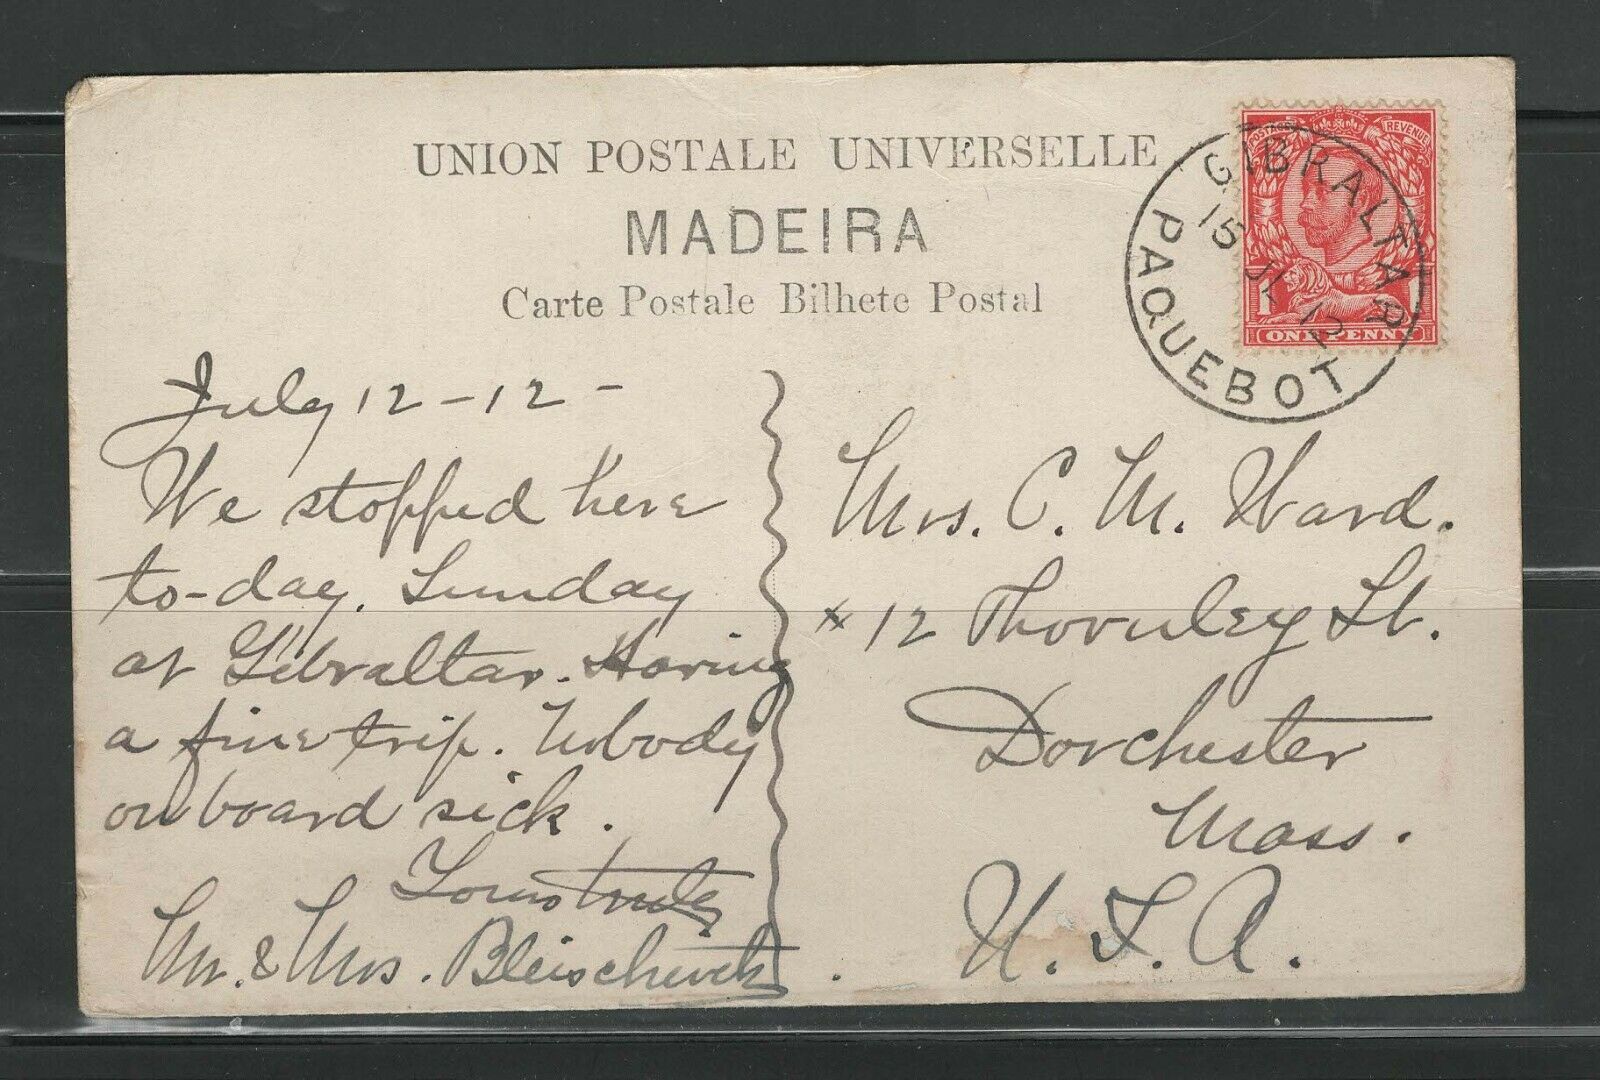 UNION POSTALE UNIVERSELLE
MADEIRA
Carte Postale Bilhete Postal
POSTAGE REVENUE
1 1
ONE PENNY
GIBRALTAR
15 JL 12
PAQUEBOT
July 12-12-
We stopped here
to-day. Sunday
at Gibraltar. Having
a fine trip. Nobody
on board sick.
Yours truly
Mr. & Mrs.
Mrs. C. M. Ward.
12 Thornley St.
Dorchester
Mass.
U. S. A.